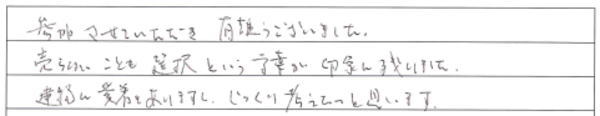 参加させていただき有難うございました。
売らないことも選択という言葉が印象に残りました。
建物に愛着もありますし、じっくり考えてっと思います。